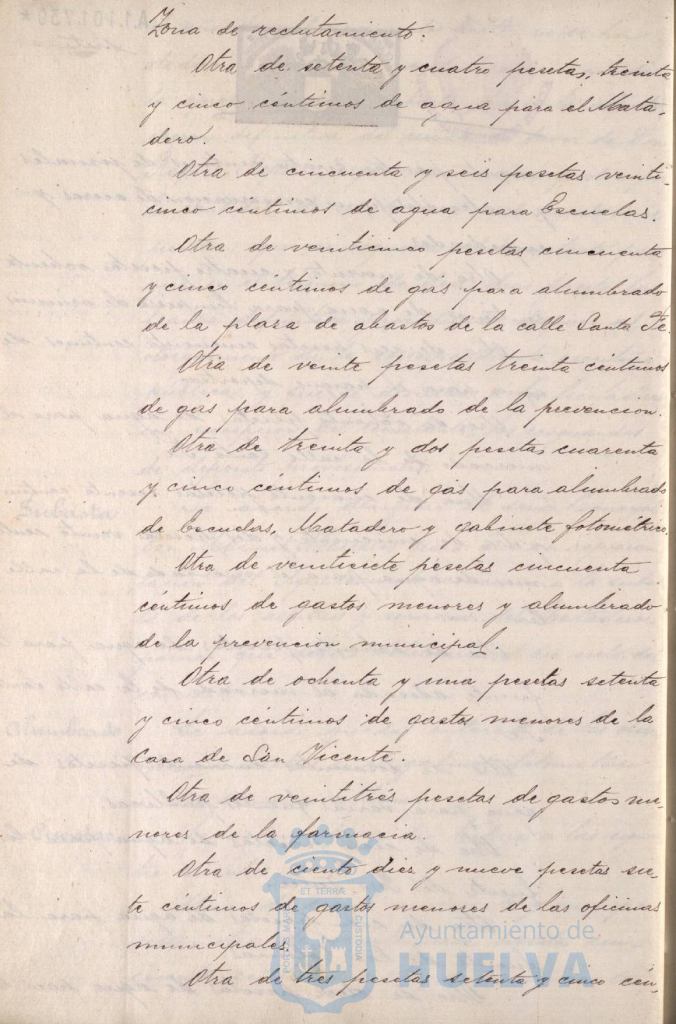 Zona de reclutamiento.
Otra de setenta y cuatro pesetas, treinta
y cinco céntimos de agua para el Mata-
dero.
Otra de cincuenta y seis pesetas veinti-
cinco céntimos de agua para Escuelas.
Otra de veinticinco pesetas cincuenta
y cinco céntimos de gás para alumbrado
de la plaza de abastos de la calle Santa Fé.
Otra de veinte pesetas treinta céntimos
de gás para alumbrado de la prevencion.
Otra de treinta y dos pesetas cuarenta
y cinco céntimos de gás para alumbrado
de Escuelas, Matadero y gabinete fotométrico.
Otra de veintisiete pesetas cincuenta
céntimos de gastos menores y alumbrado
de la prevencion municipal.
Otra de ochenta y una pesetas setenta
y cinco céntimos de gastos menores de la
Casa de San Vicente.
Otra de veintitrés pesetas de gastos me-
nores de la farmacia.
Otra de ciento diez y nueve pesetas sie-
te céntimos de gastos menores de las oficinas
municipales.
Otra de tres pesetas setenta y cinco cén-
Ayuntamiento de
HUELVA